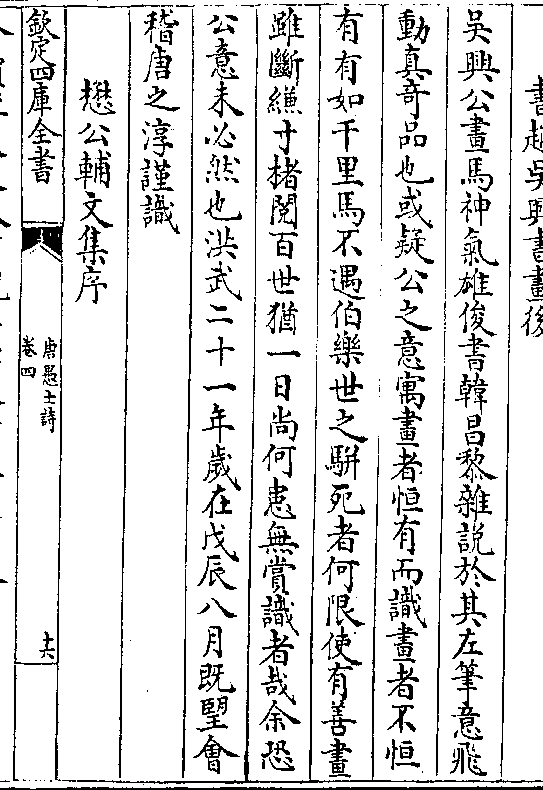 書趙吳興書畫後
吳興公畫馬神氣雄俊書韓昌黎雜説於其左筆意飛
動真竒品也或疑公之意寓畫者恒有而識畫者不恒
有有如千里馬不遇伯樂世之駢死者何限使有善畫
雖斷縑寸楮閲百世猶一日尚何患無賞識者哉余恐
公意未必然也洪武二十一年歲在戊辰八月既望會
稽唐之淳謹識
懋公輔文集序
欽定四庫全書
唐愚士詩
卷四
十六